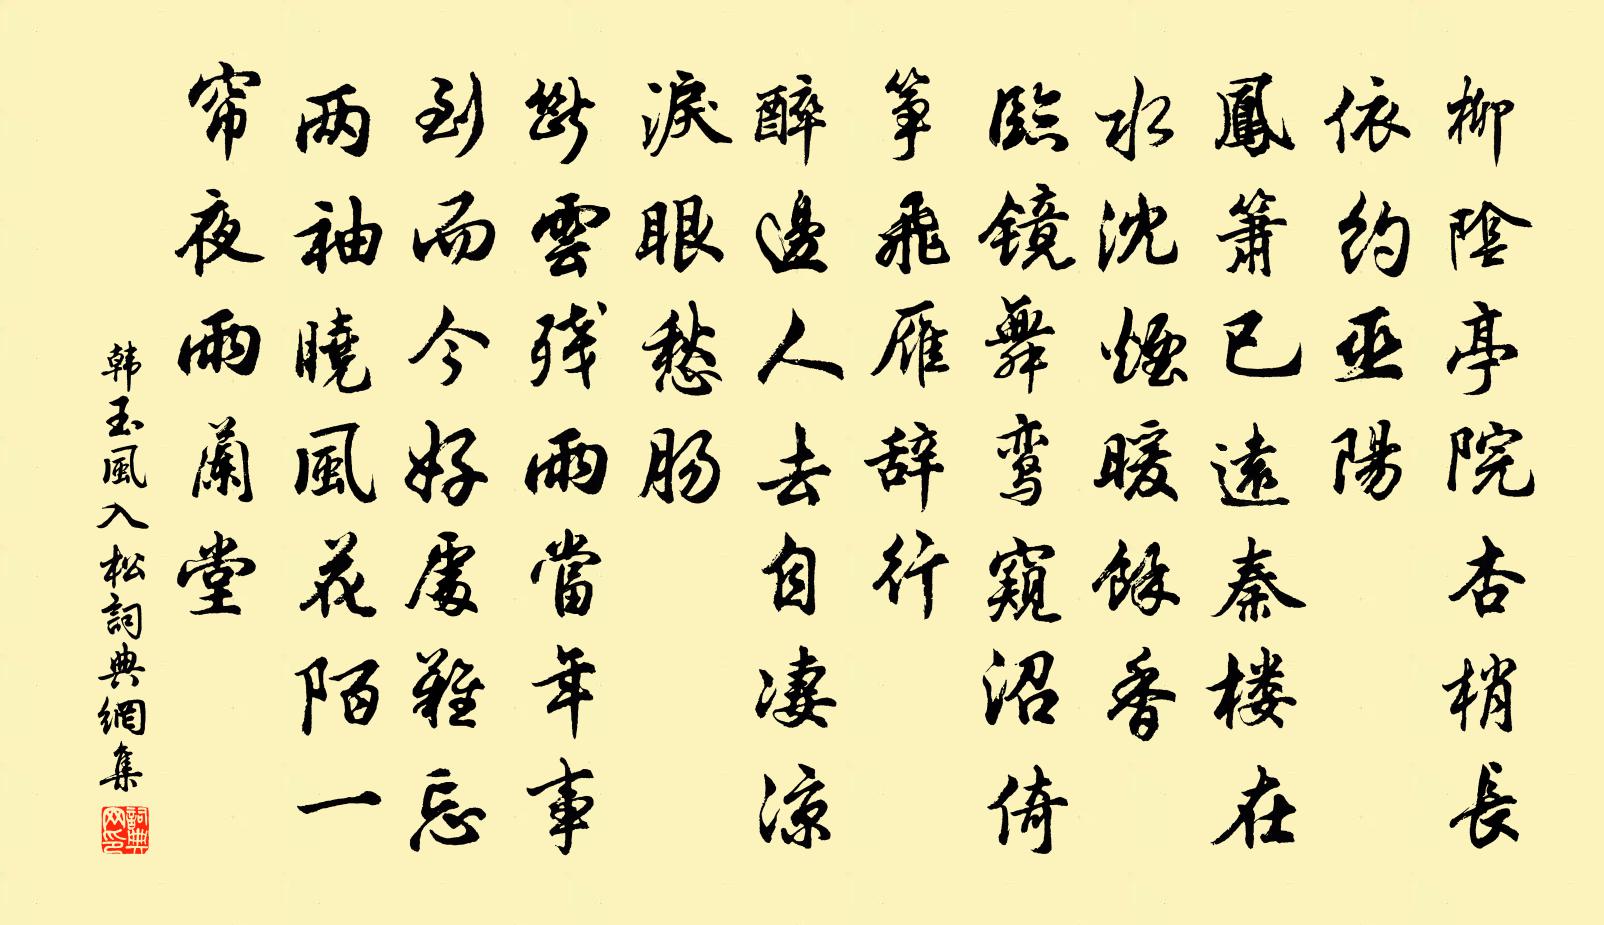 柳陰亭院杏梢長
依約巫陽
鳳簫已遠秦楼在
水沈煙暖餘香
臨镜舞鸾窺沼倚
筝飛雁辞行
醉邊人去自凄涼
淚眼愁肠
斷雲残雨當年事
到而今好處難忘
两袖曉風花陌一
帘夜雨蘭堂
韩玉風入松詞典網集
詞典网印